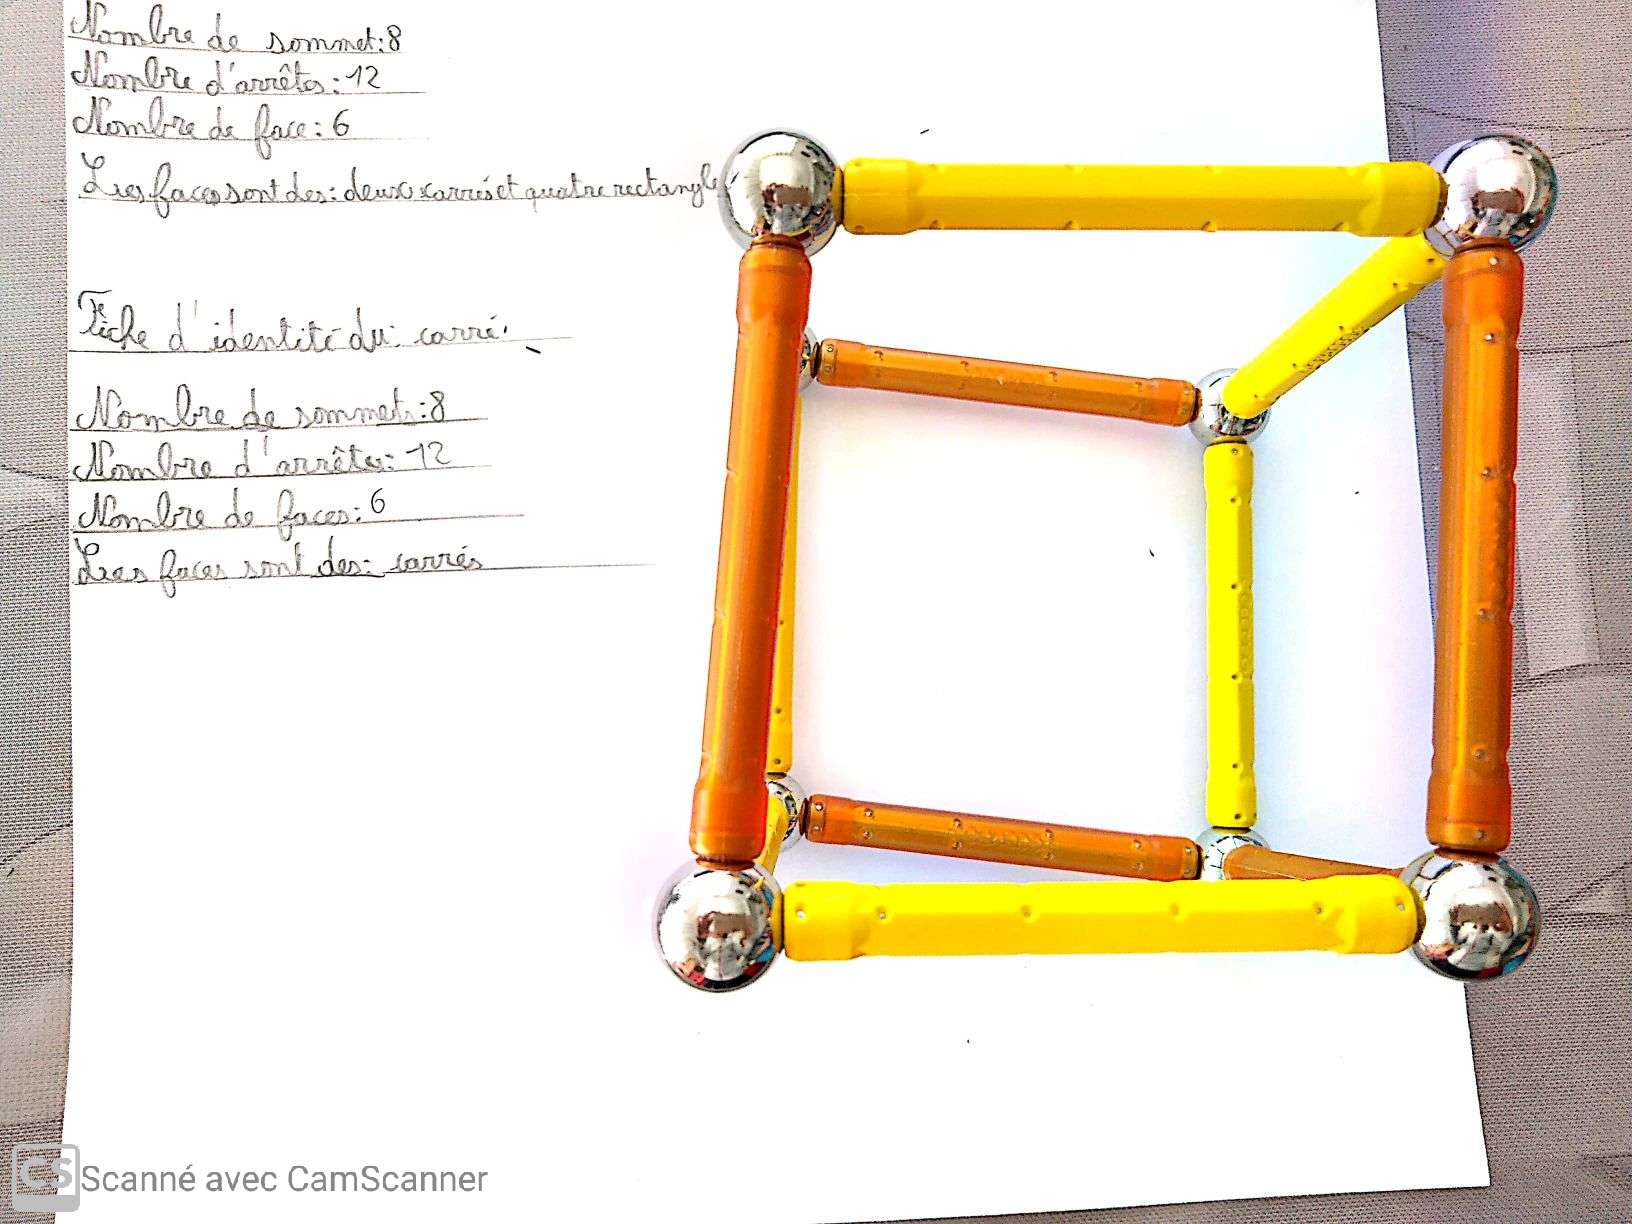 Nombre de sommet:8
Nombre d'arrêtes:12
Nombre de face:6
Les faces sont des: deux carrés et quatre rectangle
Fiche d'identité du: carré.
Nombre de sommets:8
Nombre d'arrêtes:12
Nombre de faces:6
Les faces sont des: carrés
CS Scanné avec CamScanner